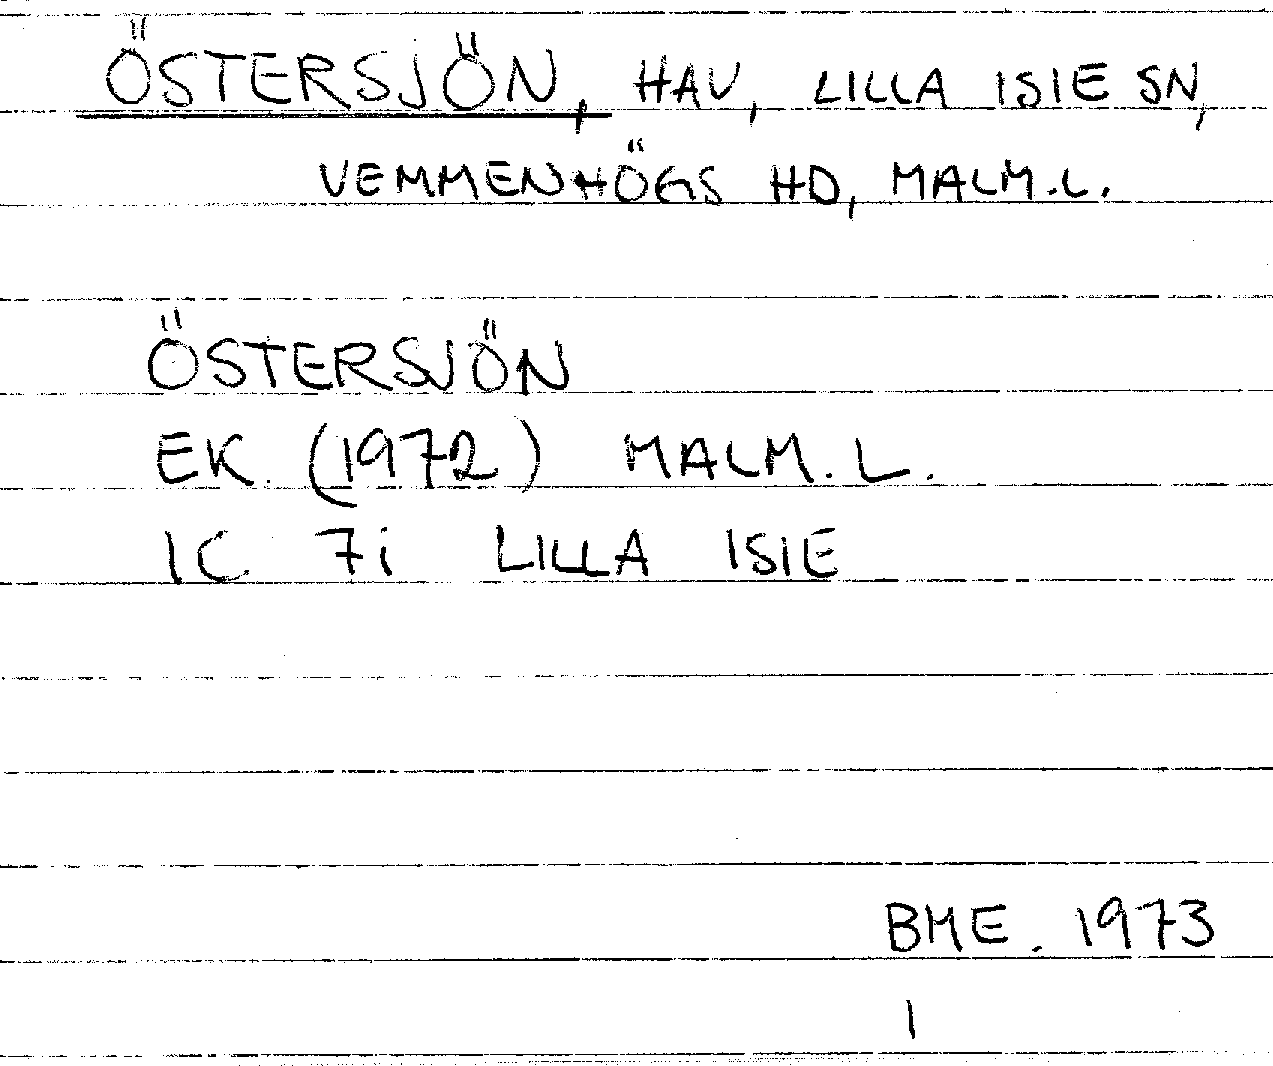 ÖSTERSJÖN, HAV, LILLA ISIE SN,
VEMMENHÖGS HD, MALM.L.
ÖSTERSJÖN
EK. (1972) MALM. L.
1C 7i LILLA ISIE
BME. 1973
1